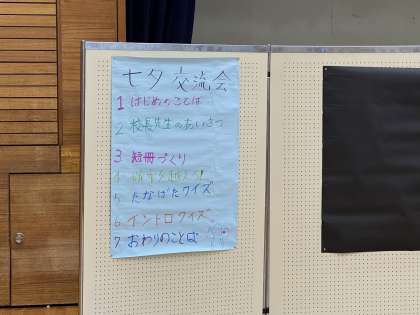 七夕 交流会
1 はじめのことば
2 校長先生のあいさつ
3 短冊づくり
4
5 たなばたクイズ
6 イントロクイズ
7 おわりのことば